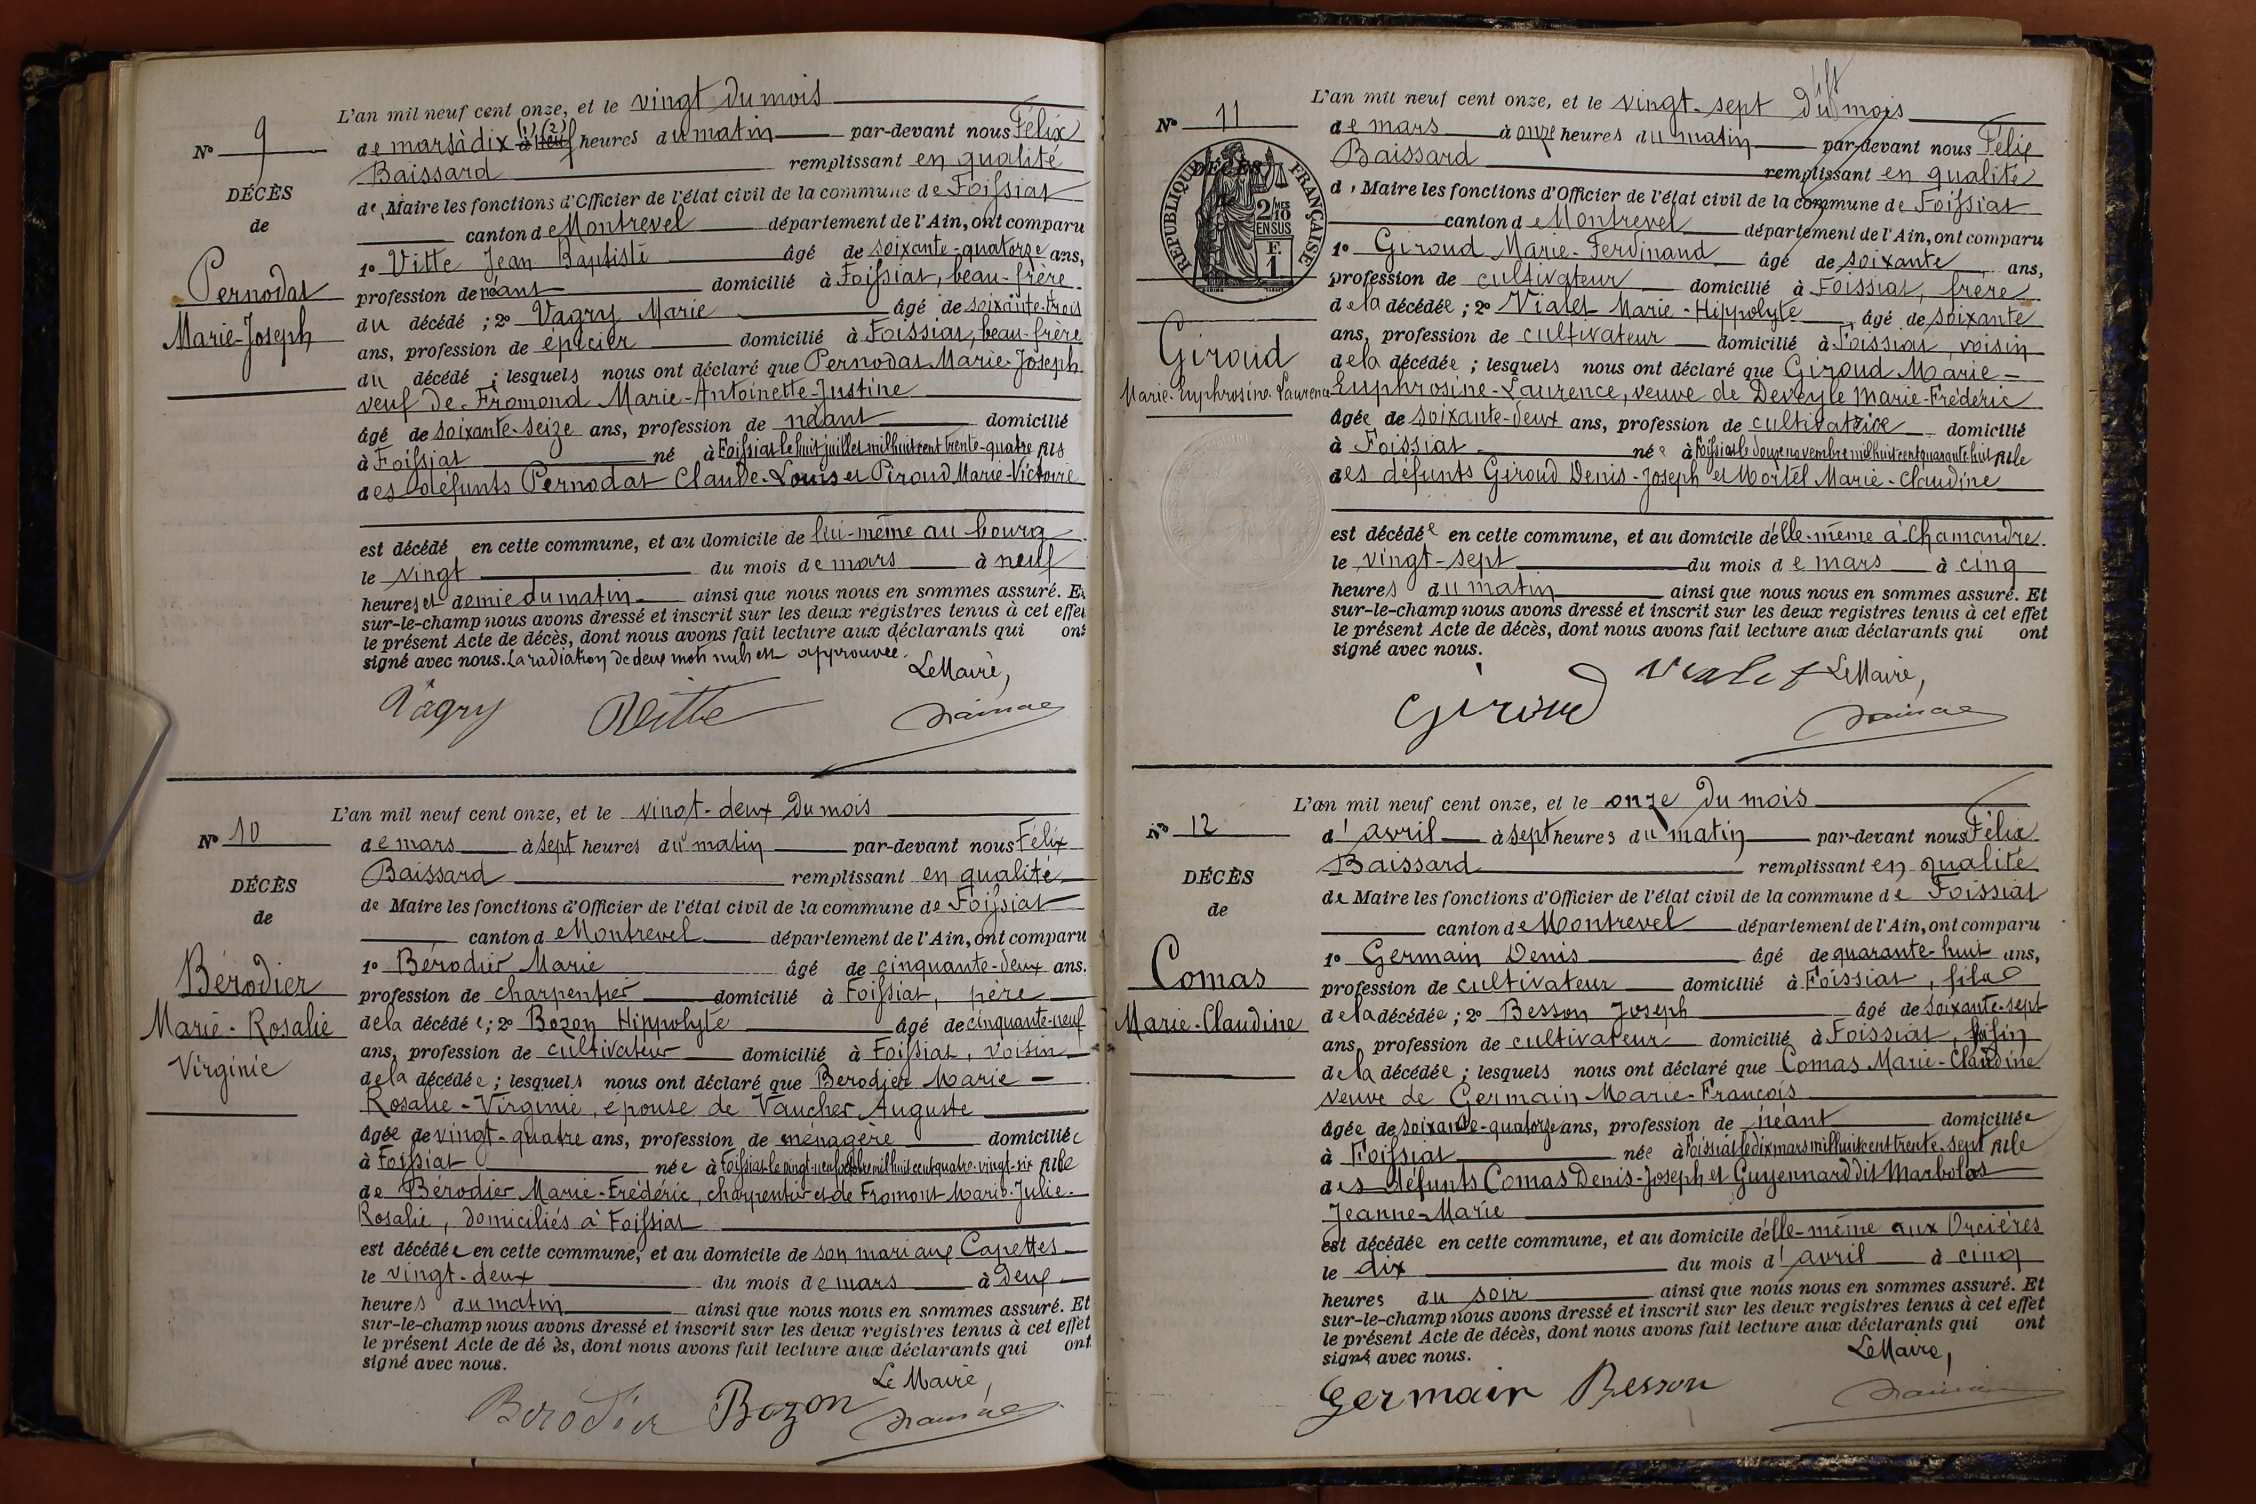 L'an mil neuf cent onze, et le vingt du mois
N° 9
de mars à dix (1) à (2) neuf heures du matin par-devant nous Félix
Baissard remplissant en qualité
DÉCÈS
de Maire les fonctions d'Officier de l'état civil de la commune de Foissiat
de
canton de Montrevel département de l'Ain, ont comparu
1° Vitte Jean Baptiste âgé de soixante-quatorze ans,
Pernodat
profession de néant domicilié à Foissiat, beau-frère
Marie-Joseph
du décédé ; 2° Vagry Marie âgé de soixante-trois
ans, profession de épicier domicilié à Foissiat, beau-frère
du décédé ; lesquels nous ont déclaré que Pernodat Marie-Joseph
veuf de Fromond Marie-Antoinette-Justine
âgé de soixante-seize ans, profession de néant domicilié
à Foissiat né à Foissiat le huit juillet mil huit cent trente-quatre fils
des défunts Pernodat Claude-Louis et Piroud Marie-Victoire
est décédé en cette commune, et au domicile de lui-même au bourg
le vingt du mois de mars à neuf
heures et demie du matin ainsi que nous nous en sommes assuré. Et
sur-le-champ nous avons dressé et inscrit sur les deux registres tenus à cet effet
le présent Acte de décès, dont nous avons fait lecture aux déclarants qui ont
signé avec nous. La radiation de deux mots nuls est approuvée.
Le Maire,
Vagry Vitte
L'an mil neuf cent onze, et le vingt-deux du mois
N° 10
de mars à sept heures du matin par-devant nous Félix
Baissard remplissant en qualité
DÉCÈS
de Maire les fonctions d'Officier de l'état civil de la commune de Foissiat
de
canton de Montrevel département de l'Ain, ont comparu
1° Bérodier Marie âgé de cinquante-deux ans.
Bérodier
profession de charpentier domicilié à Foissiat, père
Marie-Rosalie
de la décédée ; 2° Bozon Hippolyte âgé de cinquante-neuf
Virginie
ans, profession de cultivateur domicilié à Foissiat, voisin
de la décédée ; lesquels nous ont déclaré que Berodier Marie-
Rosalie-Virginie, épouse de Vaucher Auguste
âgée de vingt-quatre ans, profession de ménagère domiciliée
à Foissiat née à Foissiat le vingt-neuf octobre mil huit cent quatre-vingt-six fille
de Bérodier Marie-Frédéric, charpentier et de Fromont Marie-Julie-
Rosalie, domiciliés à Foissiat
est décédée en cette commune, et au domicile de son mari aux Capettes
le vingt-deux du mois de mars à deux
heures du matin ainsi que nous nous en sommes assuré. Et
sur-le-champ nous avons dressé et inscrit sur les deux registres tenus à cet effet
le présent Acte de décès, dont nous avons fait lecture aux déclarants qui ont
signé avec nous.
Le Maire,
Berodier Bozon
L'an mil neuf cent onze, et le vingt-sept du mois
N° 11
de mars à onze heures du matin par-devant nous Félix
Baissard remplissant en qualité
DÉCÈS
RÉPUBLIQUE FRANÇAISE
2/10 MES EN SUS
F. 1
de Maire les fonctions d'Officier de l'état civil de la commune de Foissiat
canton de Montrevel département de l'Ain, ont comparu
1° Giroud Marie-Ferdinand âgé de soixante ans,
profession de cultivateur domicilié à Foissiat, frère
de la décédée ; 2° Vialet Marie-Hippolyte, âgé de soixante
ans, profession de cultivateur domicilié à Foissiat, voisin
Giroud
de la décédée ; lesquels nous ont déclaré que Giroud Marie-
Marie-Euphrosine-Laurence
Euphrosine-Laurence, veuve de Deveyle Marie-Frédéric
âgée de soixante-deux ans, profession de cultivatrice domicilié
à Foissiat née à Foissiat le douze novembre mil huit cent quarante huit fille
des défunts Giroud Denis-Joseph et Mortel Marie-Claudine
est décédée en cette commune, et au domicile d'elle-même à Chamandre
le vingt-sept du mois de mars à cinq
heures du matin ainsi que nous nous en sommes assuré. Et
sur-le-champ nous avons dressé et inscrit sur les deux registres tenus à cet effet
le présent Acte de décès, dont nous avons fait lecture aux déclarants qui ont
signé avec nous.
Giroud Vialet Le Maire,
L'an mil neuf cent onze, et le onze du mois
N° 12
d'avril à sept heures du matin par-devant nous Félix
Baissard remplissant en qualité
DÉCÈS
de Maire les fonctions d'Officier de l'état civil de la commune de Foissiat
de
canton de Montrevel département de l'Ain, ont comparu
1° Germain Denis âgé de quarante-huit ans,
Comas
profession de cultivateur domicilié à Foissiat, fils
Marie-Claudine
de la décédée ; 2° Besson Joseph âgé de soixante-sept
ans, profession de cultivateur domicilié à Foissiat, voisin
de la décédée ; lesquels nous ont déclaré que Comas Marie-Claudine
veuve de Germain Marie-François
âgée de soixante-quatorze ans, profession de néant domiciliée
à Foissiat née à Foissiat le dix mars mil huit cent trente-sept fille
des défunts Comas Denis-Joseph et Guyennard dit Marbolas
Jeanne-Marie
est décédée en cette commune, et au domicile d'elle-même aux Orcières
le dix du mois d'avril à cinq
heures du soir ainsi que nous nous en sommes assuré. Et
sur-le-champ nous avons dressé et inscrit sur les deux registres tenus à cet effet
le présent Acte de décès, dont nous avons fait lecture aux déclarants qui ont
signé avec nous.
Le Maire,
Germain Besson